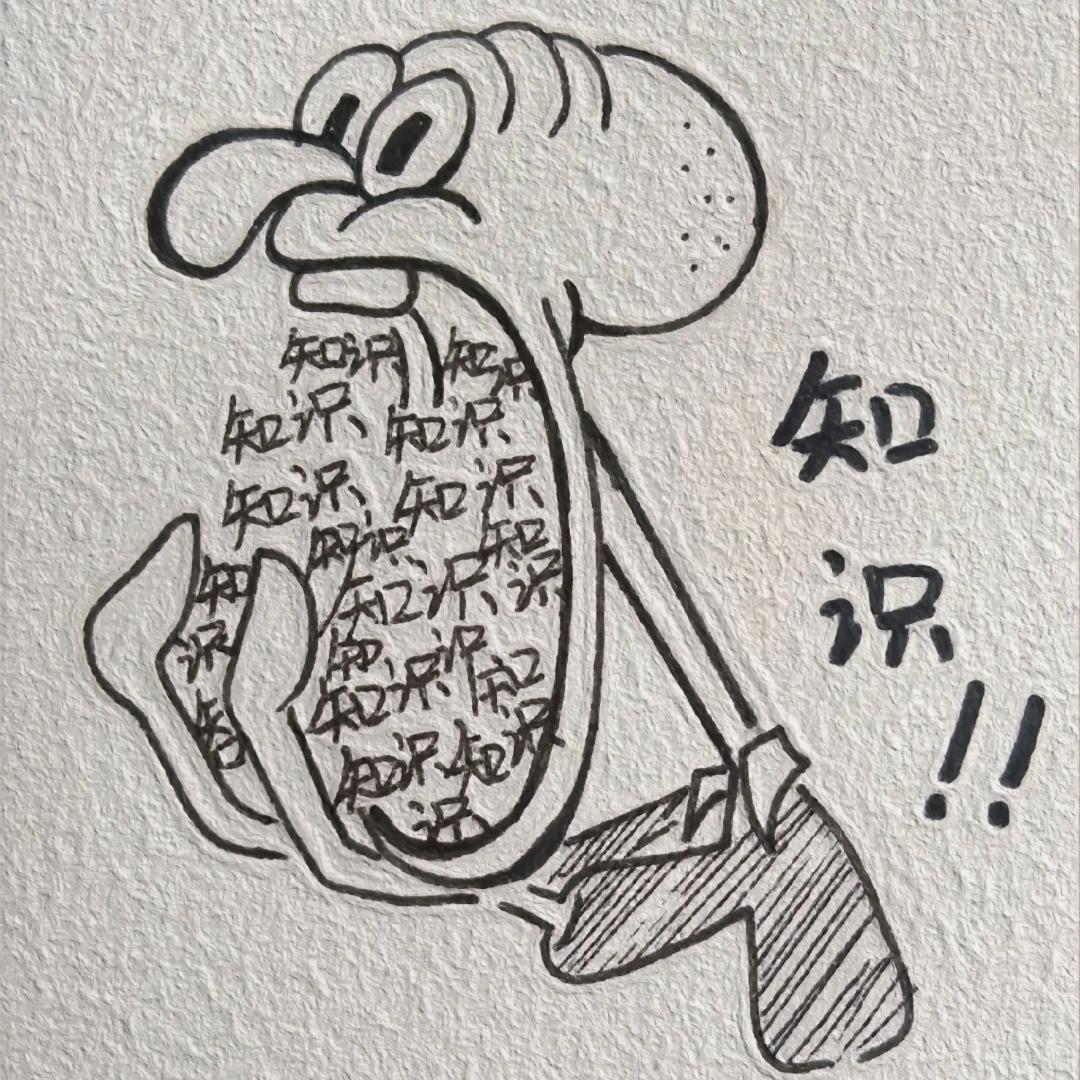 知识 知识
知识 知识
知识 知识
知识 知识
知识
知识知
知识
知识 知
知识 知识
识
知
识
!!